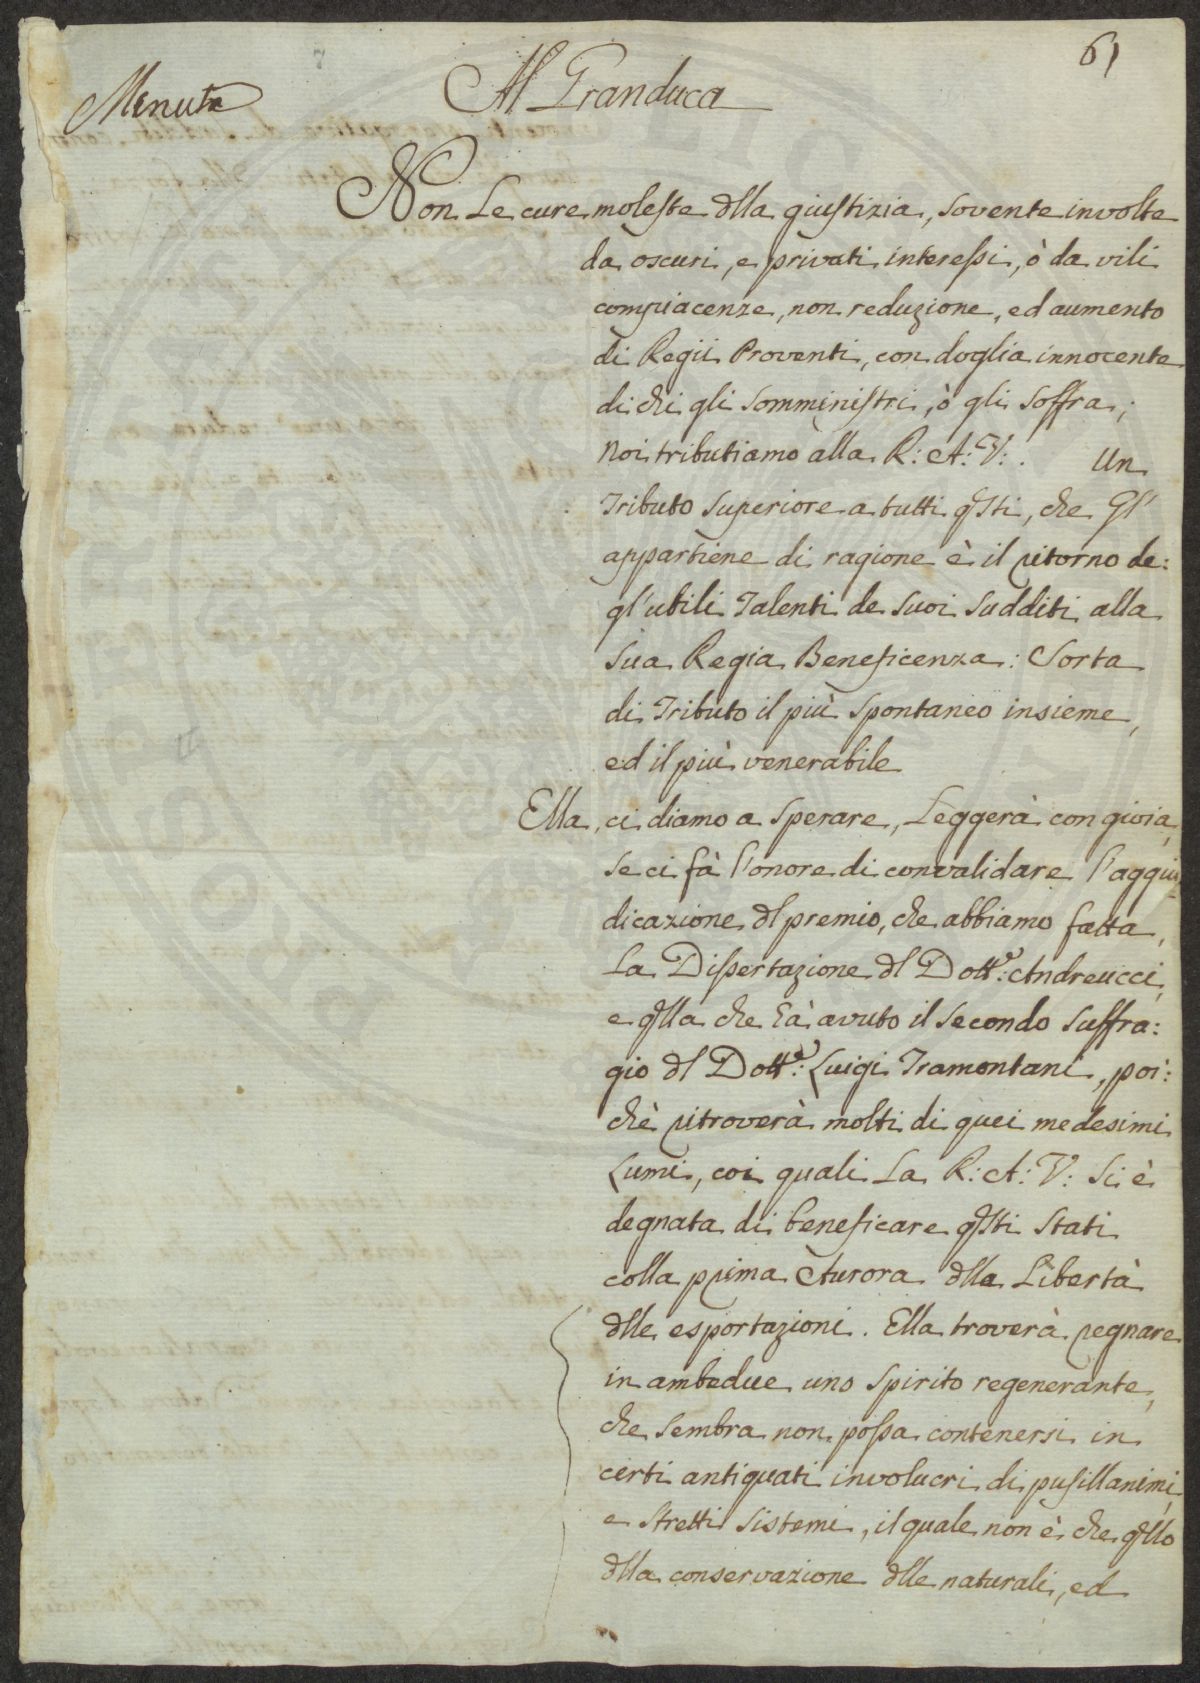 61
Minuta
Al Granduca
Non le cure moleste dlla giustizia, sovente involte
da oscuri, e privati interessi, ò da vili
compiacenze, non reduzione, ed aumento
di Regii Proventi, con doglia innocente
di chi gli somministri, ò gli soffra;
noi tributiamo alla R: A: V: . Un
Tributo superiore a tutti qsti, che Gl'
appartiene di ragione è il ritorno de:
gl'utili Talenti de suoi sudditi alla
sua Regia Beneficenza: Sorta
di Tributo il più spontaneo insieme,
ed il più venerabile
Ella, ci diamo a sperare, leggerà con gioia,
se ci fà l'onore di convalidare l'aggiu
dicazione dl premio, che abbiamo fatta,
la Dissertazione dl Dottre: Andreucci,
e qlla che hà avuto il secondo suffra:
gio dl Dottre: Luigi Tramontani, poi:
chè ritroverà molti di quei medesimi
Lumi, coi quali la R: A: V: si è
degnata di beneficare qsti stati
colla prima Aurora dlla Libertà
dlle esportazioni. Ella troverà regnare
in ambedue uno spirito regenerante,
che sembra non possa contenersi in
certi antiquati involucri di pusillanimi,
e stretti sistemi, il quale non è che qllo
dlla conservazione dlle naturali, ed